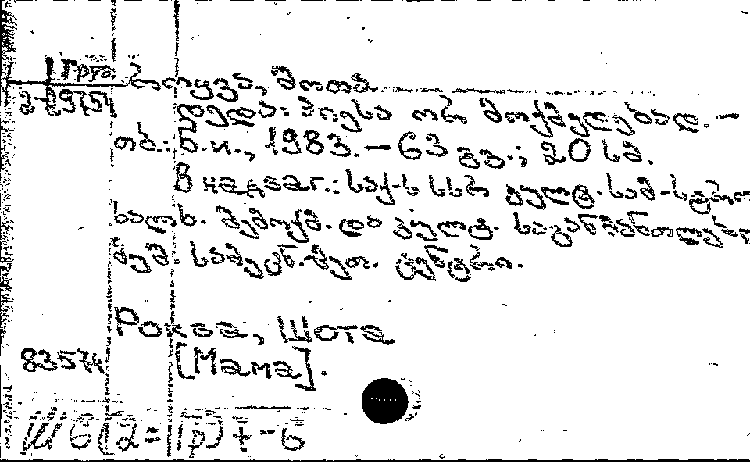 1 Груз როყვა, შოთა
2-19754 დედა: პიესა ორ მოქმედებად. –
თბ.: Б.и., 1983. – 63 გვ.; 20 სმ.
В надзаг.: საქ-ს სსრ კულტ. სამ-სტრო
ხალხ. შემოქმ. და კულტ. საგანმანათლებლო
მუშ. სამეცნ.-მეთ. ცენტრი.
Роква, Шота
83574 [Мама].
Ш6(2=Гр)+-6